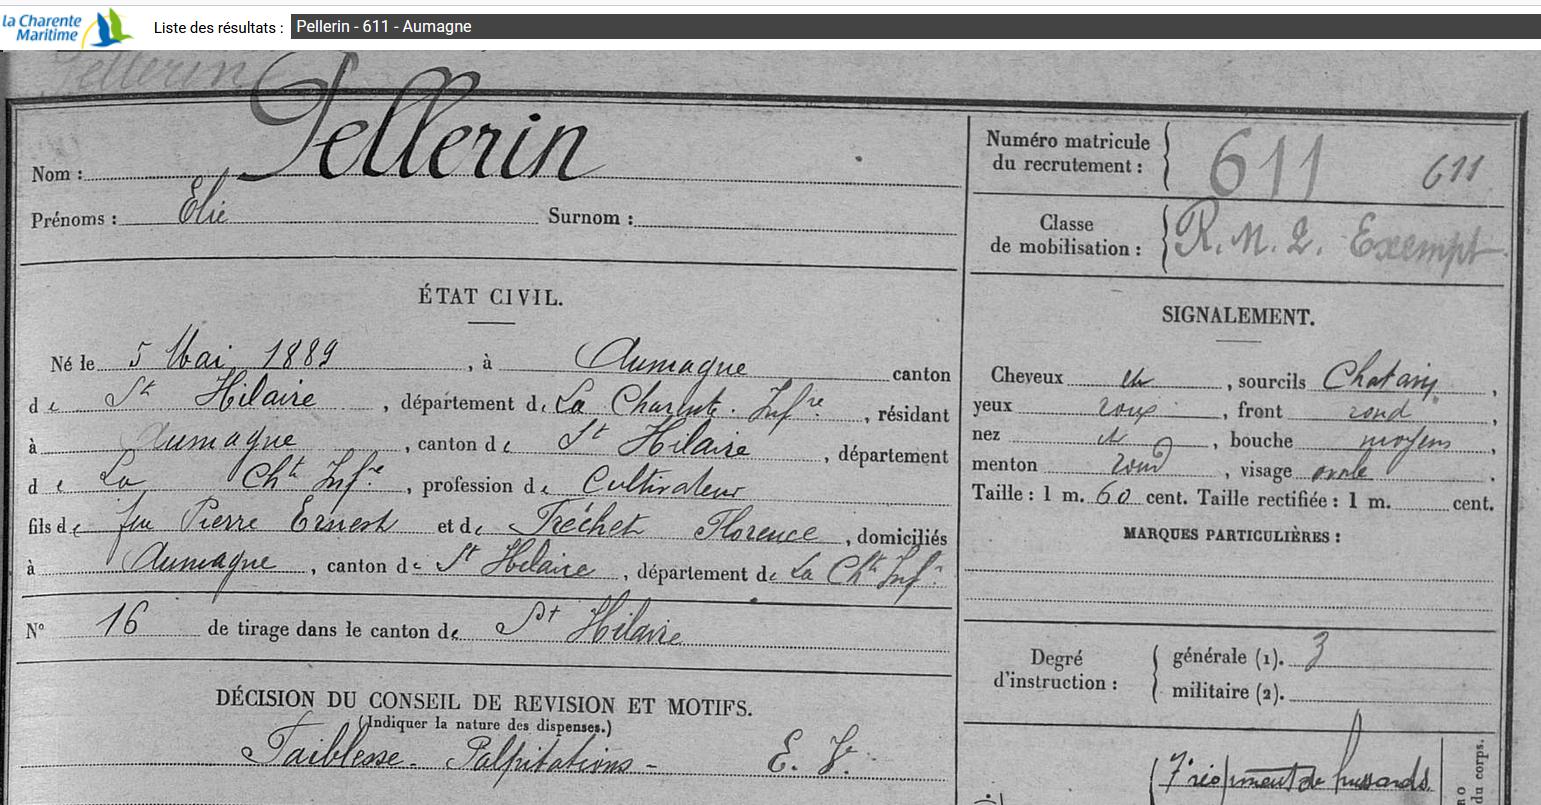 la Charente
Maritime
Liste des résultats : Pellerin - 611 - Aumagne
Pellerin
Nom : Pellerin
Prénoms : Elie Surnom :
Numéro matricule
du recrutement : 611 611
Classe
de mobilisation : R. M. 2. Exempt
ÉTAT CIVIL.
Né le 5 Mai 1889, à Aumagne canton
de St Hilaire, département de La Charente Infre, résidant
à Aumagne, canton de St Hilaire, département
de La Chte Infre, profession de Cultivateur
fils de feu Pierre Ernest et de Tréchet Florence, domiciliés
à Aumagne, canton de St Hilaire, département de La Chte Infre
No 16 de tirage dans le canton de St Hilaire
DÉCISION DU CONSEIL DE REVISION ET MOTIFS.
(Indiquer la nature des dispenses.)
Faiblesse - Palpitations -
SIGNALEMENT.
Cheveux et, sourcils Chatains,
yeux roux, front rond,
nez, bouche moyens,
menton rond, visage ovale.
Taille : 1 m. 60 cent. Taille rectifiée : 1 m. cent.
MARQUES PARTICULIÈRES :
Degré
d'instruction :
générale (1). 3
militaire (2).
7e régiment de hussards
du corps.